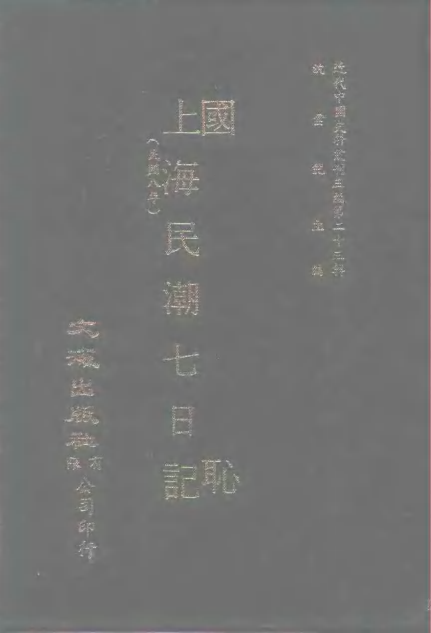 近代中國史料叢刊三編第二十三輯
沈雲龍主編
國恥
上海民潮七日記
(民國八年)
文海出版社有限公司印行